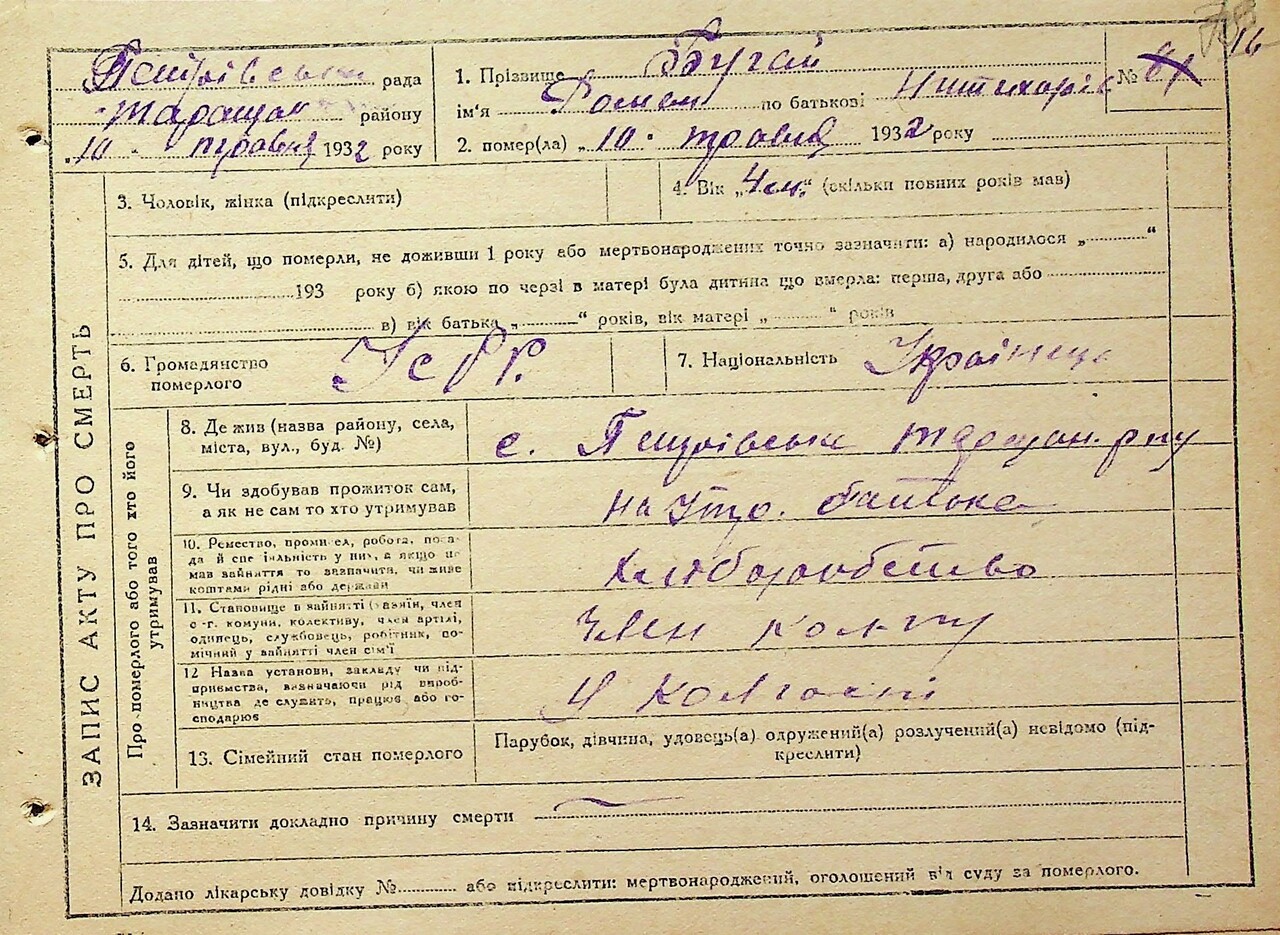 16
Петрівська рада
Таращан району
„10" травня 1932 року
1. Прізвище Бугай
ім'я Роман по батькові
№ 81
2. помер(ла) „10" травня 1932 року
ЗАПИС АКТУ ПРО СМЕРТЬ
3. Чоловік, жінка (підкреслити)
4. Вік „4 м." (скільки повних років мав)
5. Для дітей, що померли, не доживши 1 року або мертвонароджених точно зазначити: а) народилося „ “
193 року б) якою по черзі в матері була дитина що вмерла: перша, друга або
в) вік батька „ “ років, вік матері „ “ років
6. Громадянство
померлого
УСРР.
7. Національність Українець
Про померлого або того хто його
утримував
8. Де жив (назва району, села,
міста, вул., буд. №)
с. Петрівське Таращан. р-ну
9. Чи здобував прожиток сам,
а як не сам то хто утримував
на утр. батька
10. Ремество, промисел, робота, поса-
да й спеціяльність у них, а якщо не
мав зайняття то зазначити, чи живе
коштами рідні або держави
Хліборобство
11. Становище в зайнятті (хазяїн, член
с.-г. комуни, колективу, член артілі,
одинець, службовець, робітник, по-
мічний у зайнятті член сім'ї
Член колгоспу
12 Назва установи, закладу чи під-
приємства, визначаючи рід вироб-
ництва де служить, працює або го-
сподарює
У колгоспі
13. Сімейний стан померлого
Парубок, дівчина, удовець(а) одружений(а) розлучений(а) невідомо (під-
креслити)
14. Зазначити докладно причину смерти
Додано лікарську довідку № або підкреслити: мертвонароджений, оголошений від суду за померлого.